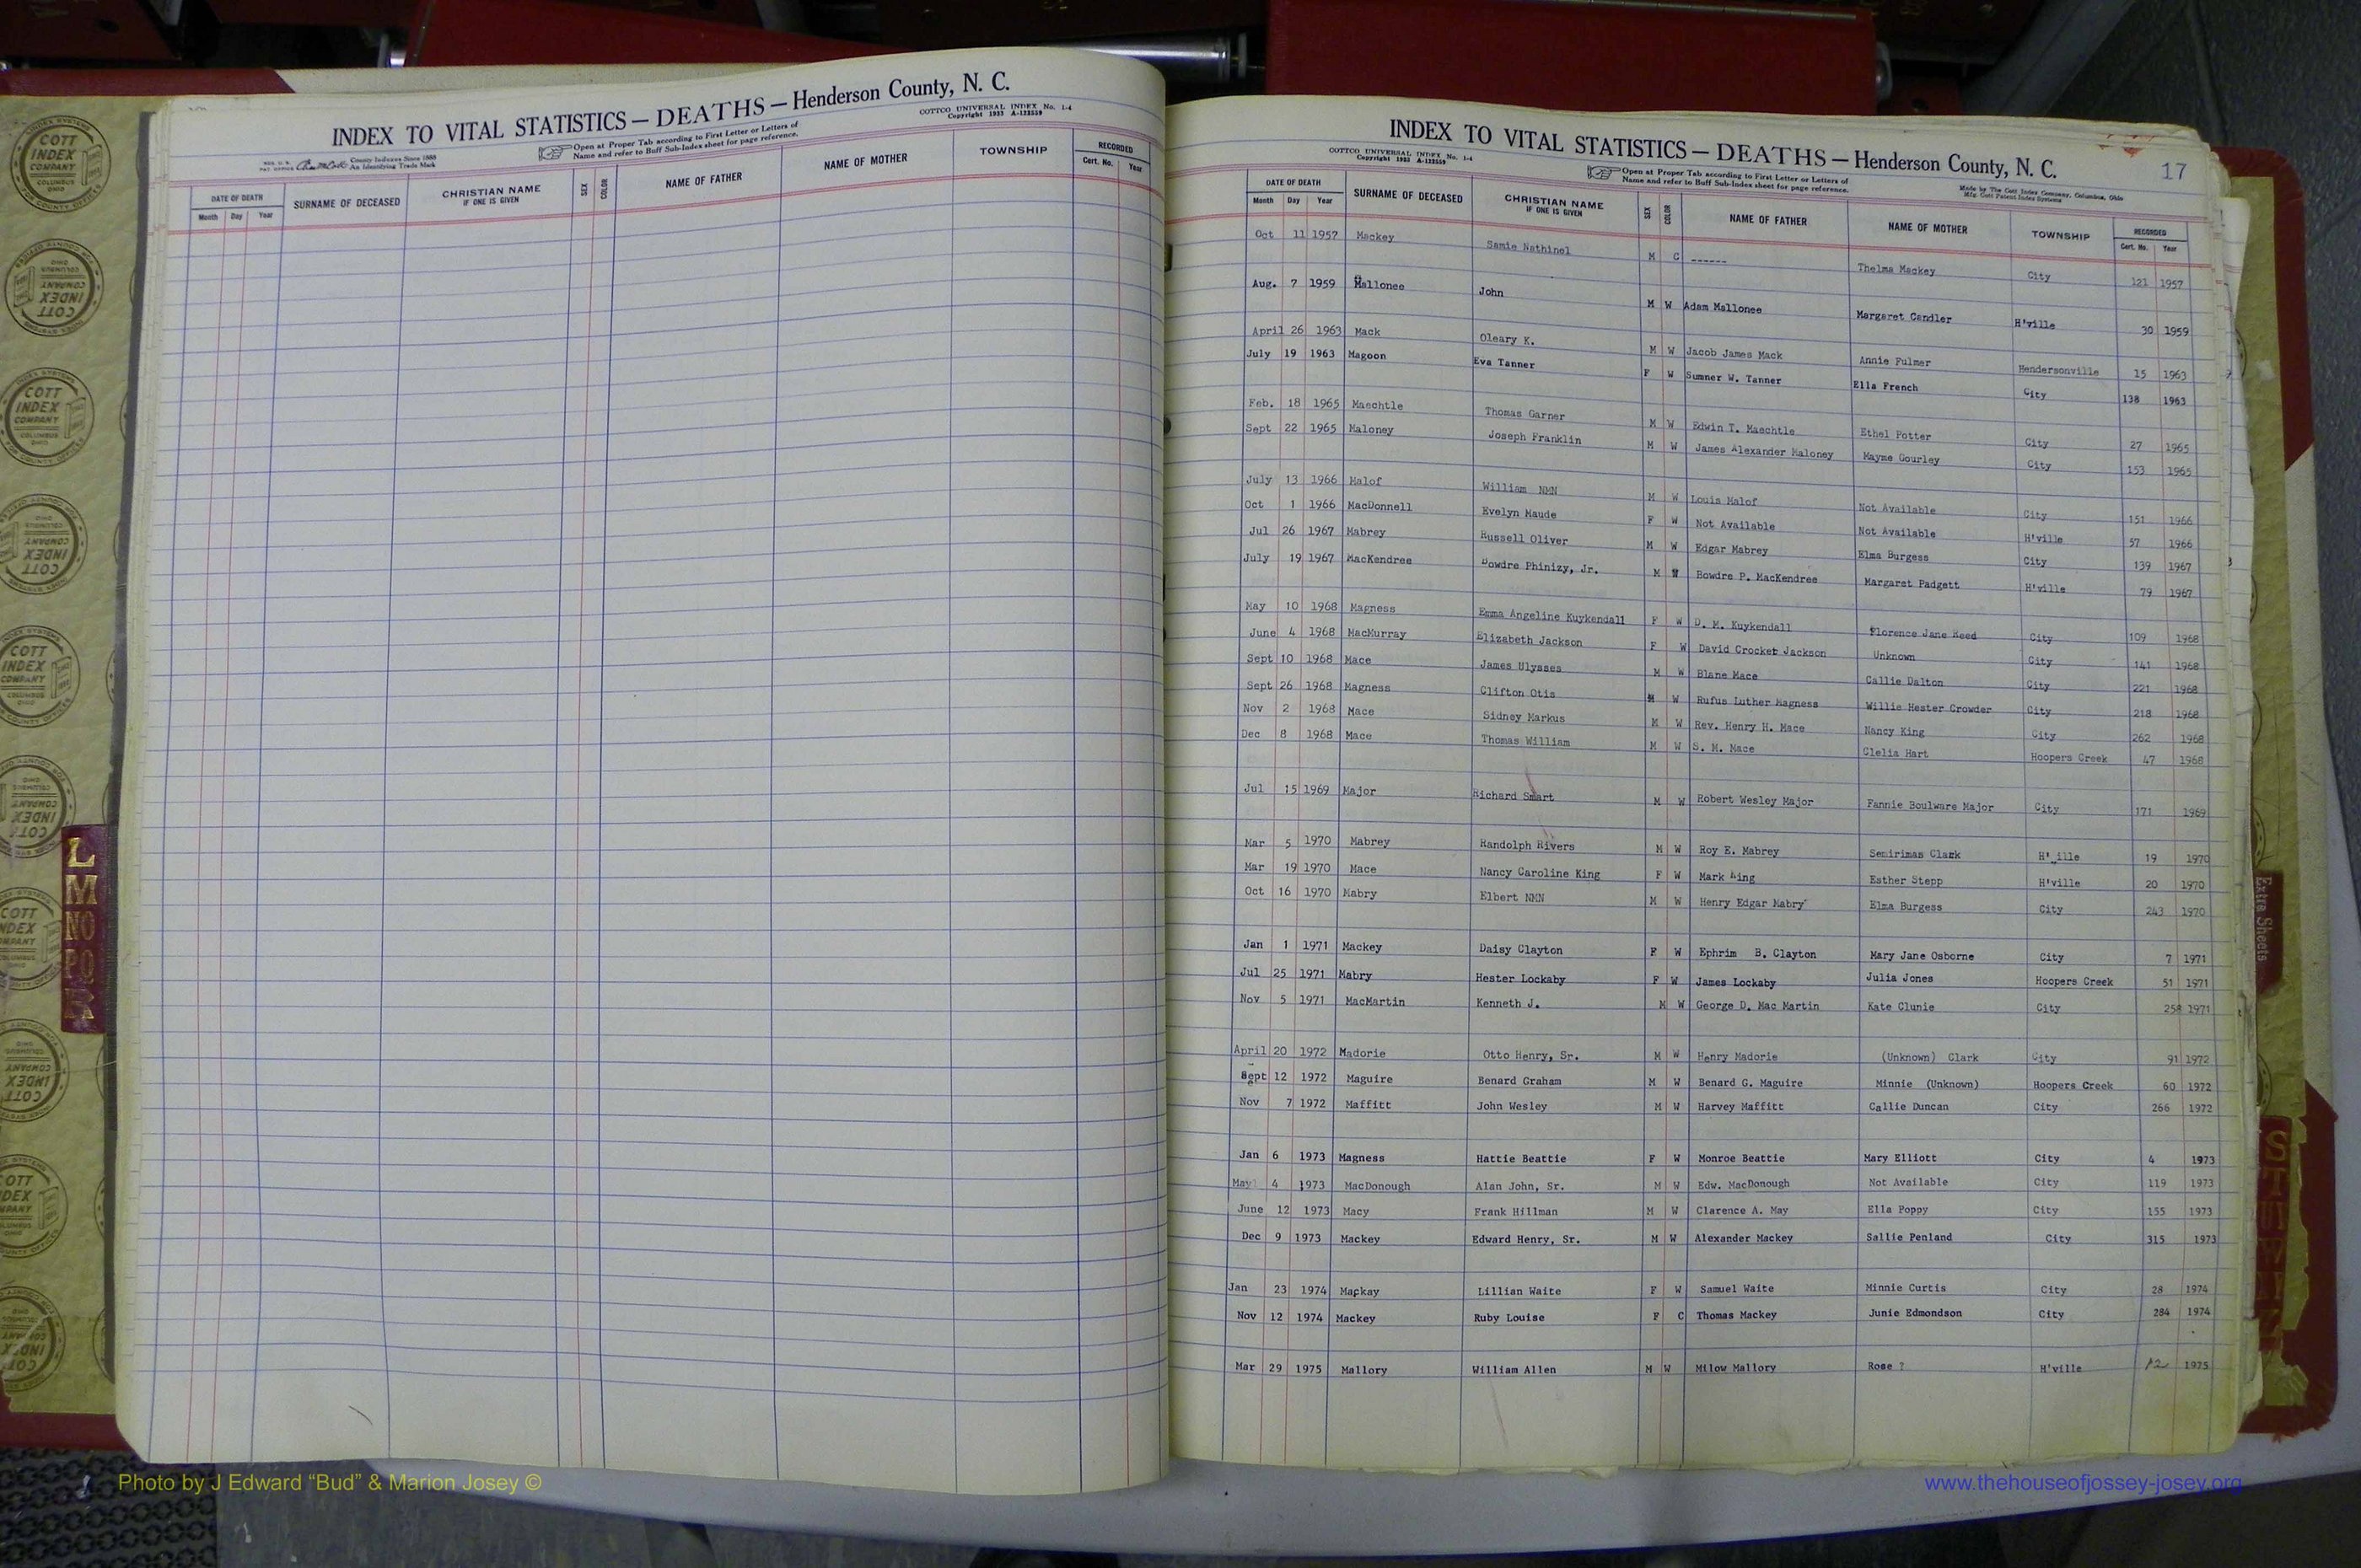 INDEX TO VITAL STATISTICS — DEATHS — Henderson County, N. C.
COTTCO UNIVERSAL INDEX No. 1-4
Copyright 1933 A-123559
County Indexes Since 1888
An Identifying Trade Mark
Open at Proper Tab according to First Letter or Letters of
Name and refer to Buff Sub-Index sheet for page reference.
DATE OF DEATH SURNAME OF DECEASED CHRISTIAN NAME IF ONE IS GIVEN SEX COLOR NAME OF FATHER NAME OF MOTHER TOWNSHIP RECORDED
Month Day Year Cert. No. Year
INDEX TO VITAL STATISTICS — DEATHS — Henderson County, N. C.
17
COTTCO UNIVERSAL INDEX No. 1-4
Copyright 1933 A-123559
Open at Proper Tab according to First Letter or Letters of
Name and refer to Buff Sub-Index sheet for page reference.
Made by The Cott Index Company, Columbus, Ohio
Mfg. Cott Patent Index Systems
DATE OF DEATH SURNAME OF DECEASED CHRISTIAN NAME IF ONE IS GIVEN SEX COLOR NAME OF FATHER NAME OF MOTHER TOWNSHIP RECORDED
Month Day Year Cert. No. Year
Oct 11 1957 Mackey Samie Nathinel M C ------ Thelma Mackey City 121 1957
Aug. 7 1959 Mallonee John M W Adam Mallonee Margaret Candler H'ville 30 1959
April 26 1963 Mack Oleary K. M W Jacob James Mack Annie Fulmer Hendersonville 15 1963
July 19 1963 Magoon Eva Tanner F W Sumner W. Tanner Ella French City 138 1963
Feb. 18 1965 Maechtle Thomas Garner M W Edwin T. Maechtle Ethel Potter City 27 1965
Sept 22 1965 Maloney Joseph Franklin M W James Alexander Maloney Mayme Gourley City 153 1965
July 13 1966 Malof William NMN M W Louis Malof Not Available City 151 1966
Oct 1 1966 MacDonnell Evelyn Maude F W Not Available Not Available H'ville 57 1966
Jul 26 1967 Mabrey Russell Oliver M W Edgar Mabrey Elma Burgess City 139 1967
July 19 1967 MacKendree Bowdre Phinizy, Jr. M W Bowdre P. MacKendree Margaret Padgett H'ville 79 1967
May 10 1968 Magness Emma Angeline Kuykendall F W D. M. Kuykendall Florence Jane Reed City 109 1968
June 4 1968 MacMurray Elizabeth Jackson F W David Crocket Jackson Unknown City 141 1968
Sept 10 1968 Mace James Ulysses M W Blane Mace Callie Dalton City 221 1968
Sept 26 1968 Magness Clifton Otis M W Rufus Luther Magness Willie Hester Crowder City 218 1968
Nov 2 1968 Mace Sidney Markus M W Rev. Henry H. Mace Nancy King City 262 1968
Dec 8 1968 Mace Thomas William M W S. M. Mace Clelia Hart Hoopers Creek 47 1968
Jul 15 1969 Major Richard Smart M W Robert Wesley Major Fannie Boulware Major City 171 1969
Mar 5 1970 Mabrey Randolph Rivers M W Roy E. Mabrey Semirimas Clark H' ille 19 1970
Mar 19 1970 Mace Nancy Caroline King F W Mark King Esther Stepp H'ville 20 1970
Oct 16 1970 Mabry Elbert NMN M W Henry Edgar Mabry Elma Burgess City 243 1970
Jan 1 1971 Mackey Daisy Clayton F W Ephrim B. Clayton Mary Jane Osborne City 7 1971
Jul 25 1971 Mabry Hester Lockaby F W James Lockaby Julia Jones Hoopers Creek 51 1971
Nov 5 1971 MacMartin Kenneth J. M W George D. Mac Martin Kate Clunie City 258 1971
April 20 1972 Madorie Otto Henry, Sr. M W Henry Madorie (Unknown) Clark City 91 1972
Sept 12 1972 Maguire Benard Graham M W Benard G. Maguire Minnie (Unknown) Hoopers Creek 60 1972
Nov 7 1972 Maffitt John Wesley M W Harvey Maffitt Callie Duncan City 266 1972
Jan 6 1973 Magness Hattie Beattie F W Monroe Beattie Mary Elliott City 4 1973
May 4 1973 MacDonough Alan John, Sr. M W Edw. MacDonough Not Available City 119 1973
June 12 1973 Macy Frank Hillman M W Clarence A. May Ella Poppy City 155 1973
Dec 9 1973 Mackey Edward Henry, Sr. M W Alexander Mackey Sallie Penland City 315 1973
Jan 23 1974 Mackay Lillian Waite F W Samuel Waite Minnie Curtis City 28 1974
Nov 12 1974 Mackey Ruby Louise F C Thomas Mackey Junie Edmondson City 284 1974
Mar 29 1975 Mallory William Allen M W Milow Mallory Rose ? H'ville 12 1975
COTT
INDEX
COMPANY
COLUMBUS
OHIO
L
M
NO
PQ
R
Extra Sheets
Photo by J Edward “Bud” & Marion Josey ©
www.thehouseofjossey-josey.org